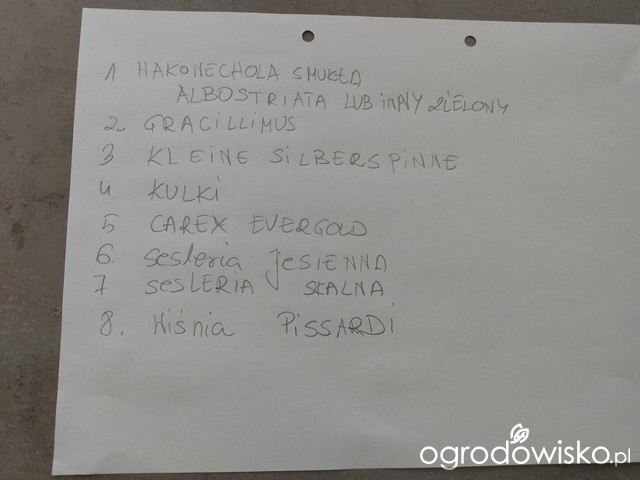 1 HAKONECHOLA SMUKŁA
ALBOSTRIATA LUB INNY ZIELONY
2. GRACILLIMUS
3. KLEINE SILBERSPINNE
4. KULKI
5. CAREX EVERGOLD
6. sesleria JESIENNA
7 SESLERIA SKALNA
8. Wiśnia PISSARDI
ogrodowisko.pl